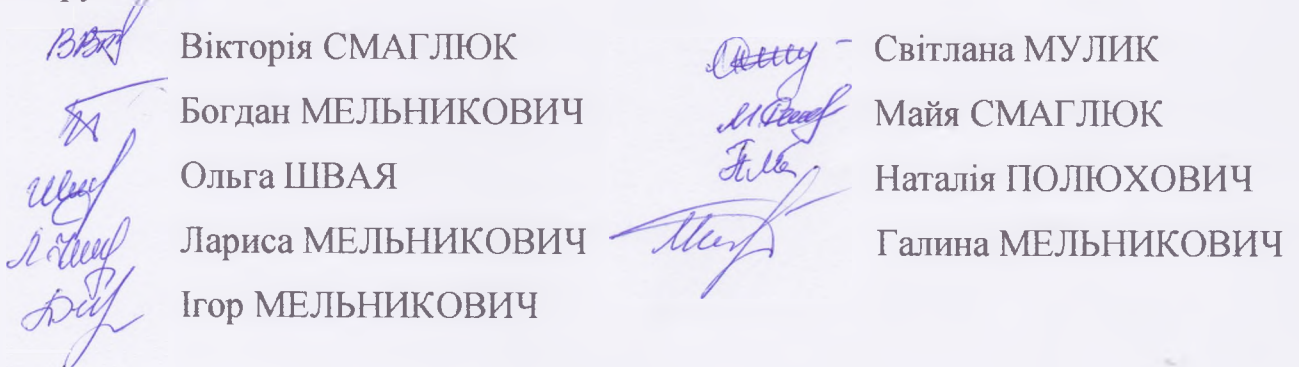 Вікторія СМАГЛЮК
Богдан МЕЛЬНИКОВИЧ
Ольга ШВАЯ
Лариса МЕЛЬНИКОВИЧ
Ігор МЕЛЬНИКОВИЧ
Світлана МУЛИК
Майя СМАГЛЮК
Наталія ПОЛЮХОВИЧ
Галина МЕЛЬНИКОВИЧ